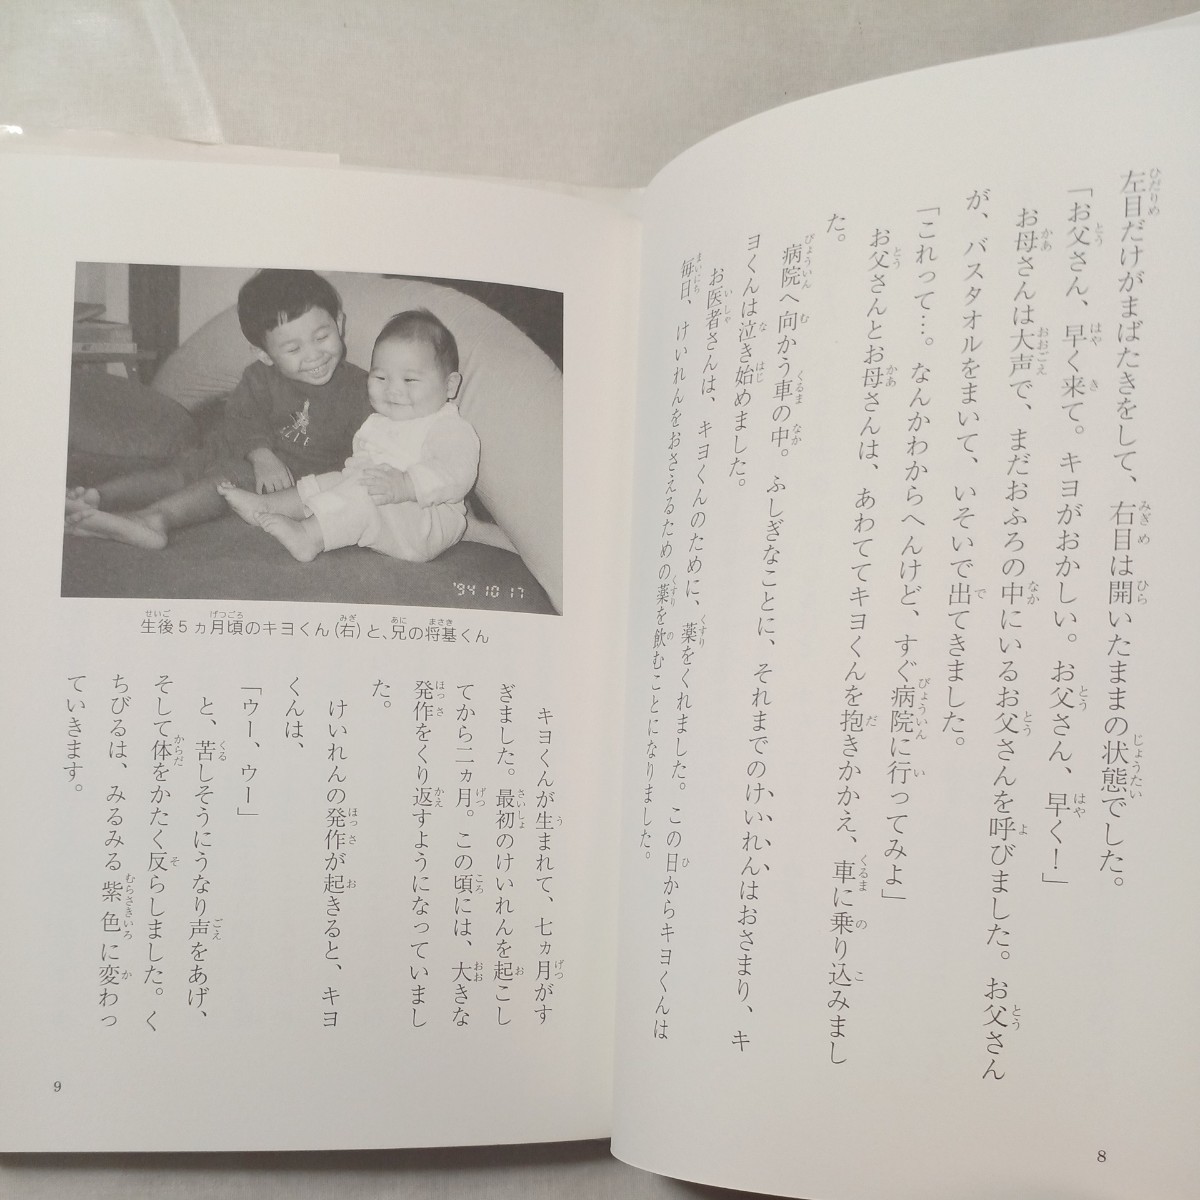 左目だけがまばたきをして、右目は開いたままの状態でした。
「お父さん、早く来て。キヨがおかしい。お父さん、早く！」
お母さんは大声で、まだおふろの中にいるお父さんを呼びました。お父さん
が、バスタオルをまいて、いそいで出てきました。
「これって…。なんかわからへんけど、すぐ病院に行ってみよ」
お父さんとお母さんは、あわててキヨくんを抱きかかえ、車に乗り込みまし
た。
病院へ向かう車の中。ふしぎなことに、それまでのけいれんはおさまり、キ
ヨくんは泣き始めました。
お医者さんは、キヨくんのために、薬をくれました。この日からキヨくんは
毎日、けいれんをおさえるための薬を飲むことになりました。
8
'94 10 17
生後5ヵ月頃のキヨくん(右)と、兄の将基くん
キヨくんが生まれて、七ヵ月がす
ぎました。最初のけいれんを起こし
てから二ヵ月。この頃には、大きな
発作をくり返すようになっていまし
た。
けいれんの発作が起きると、キヨ
くんは、
「ウー、ウー」
と、苦しそうにうなり声をあげ、
そして体をかたく反らしました。く
ちびるは、みるみる紫色に変わっ
ていきます。
9